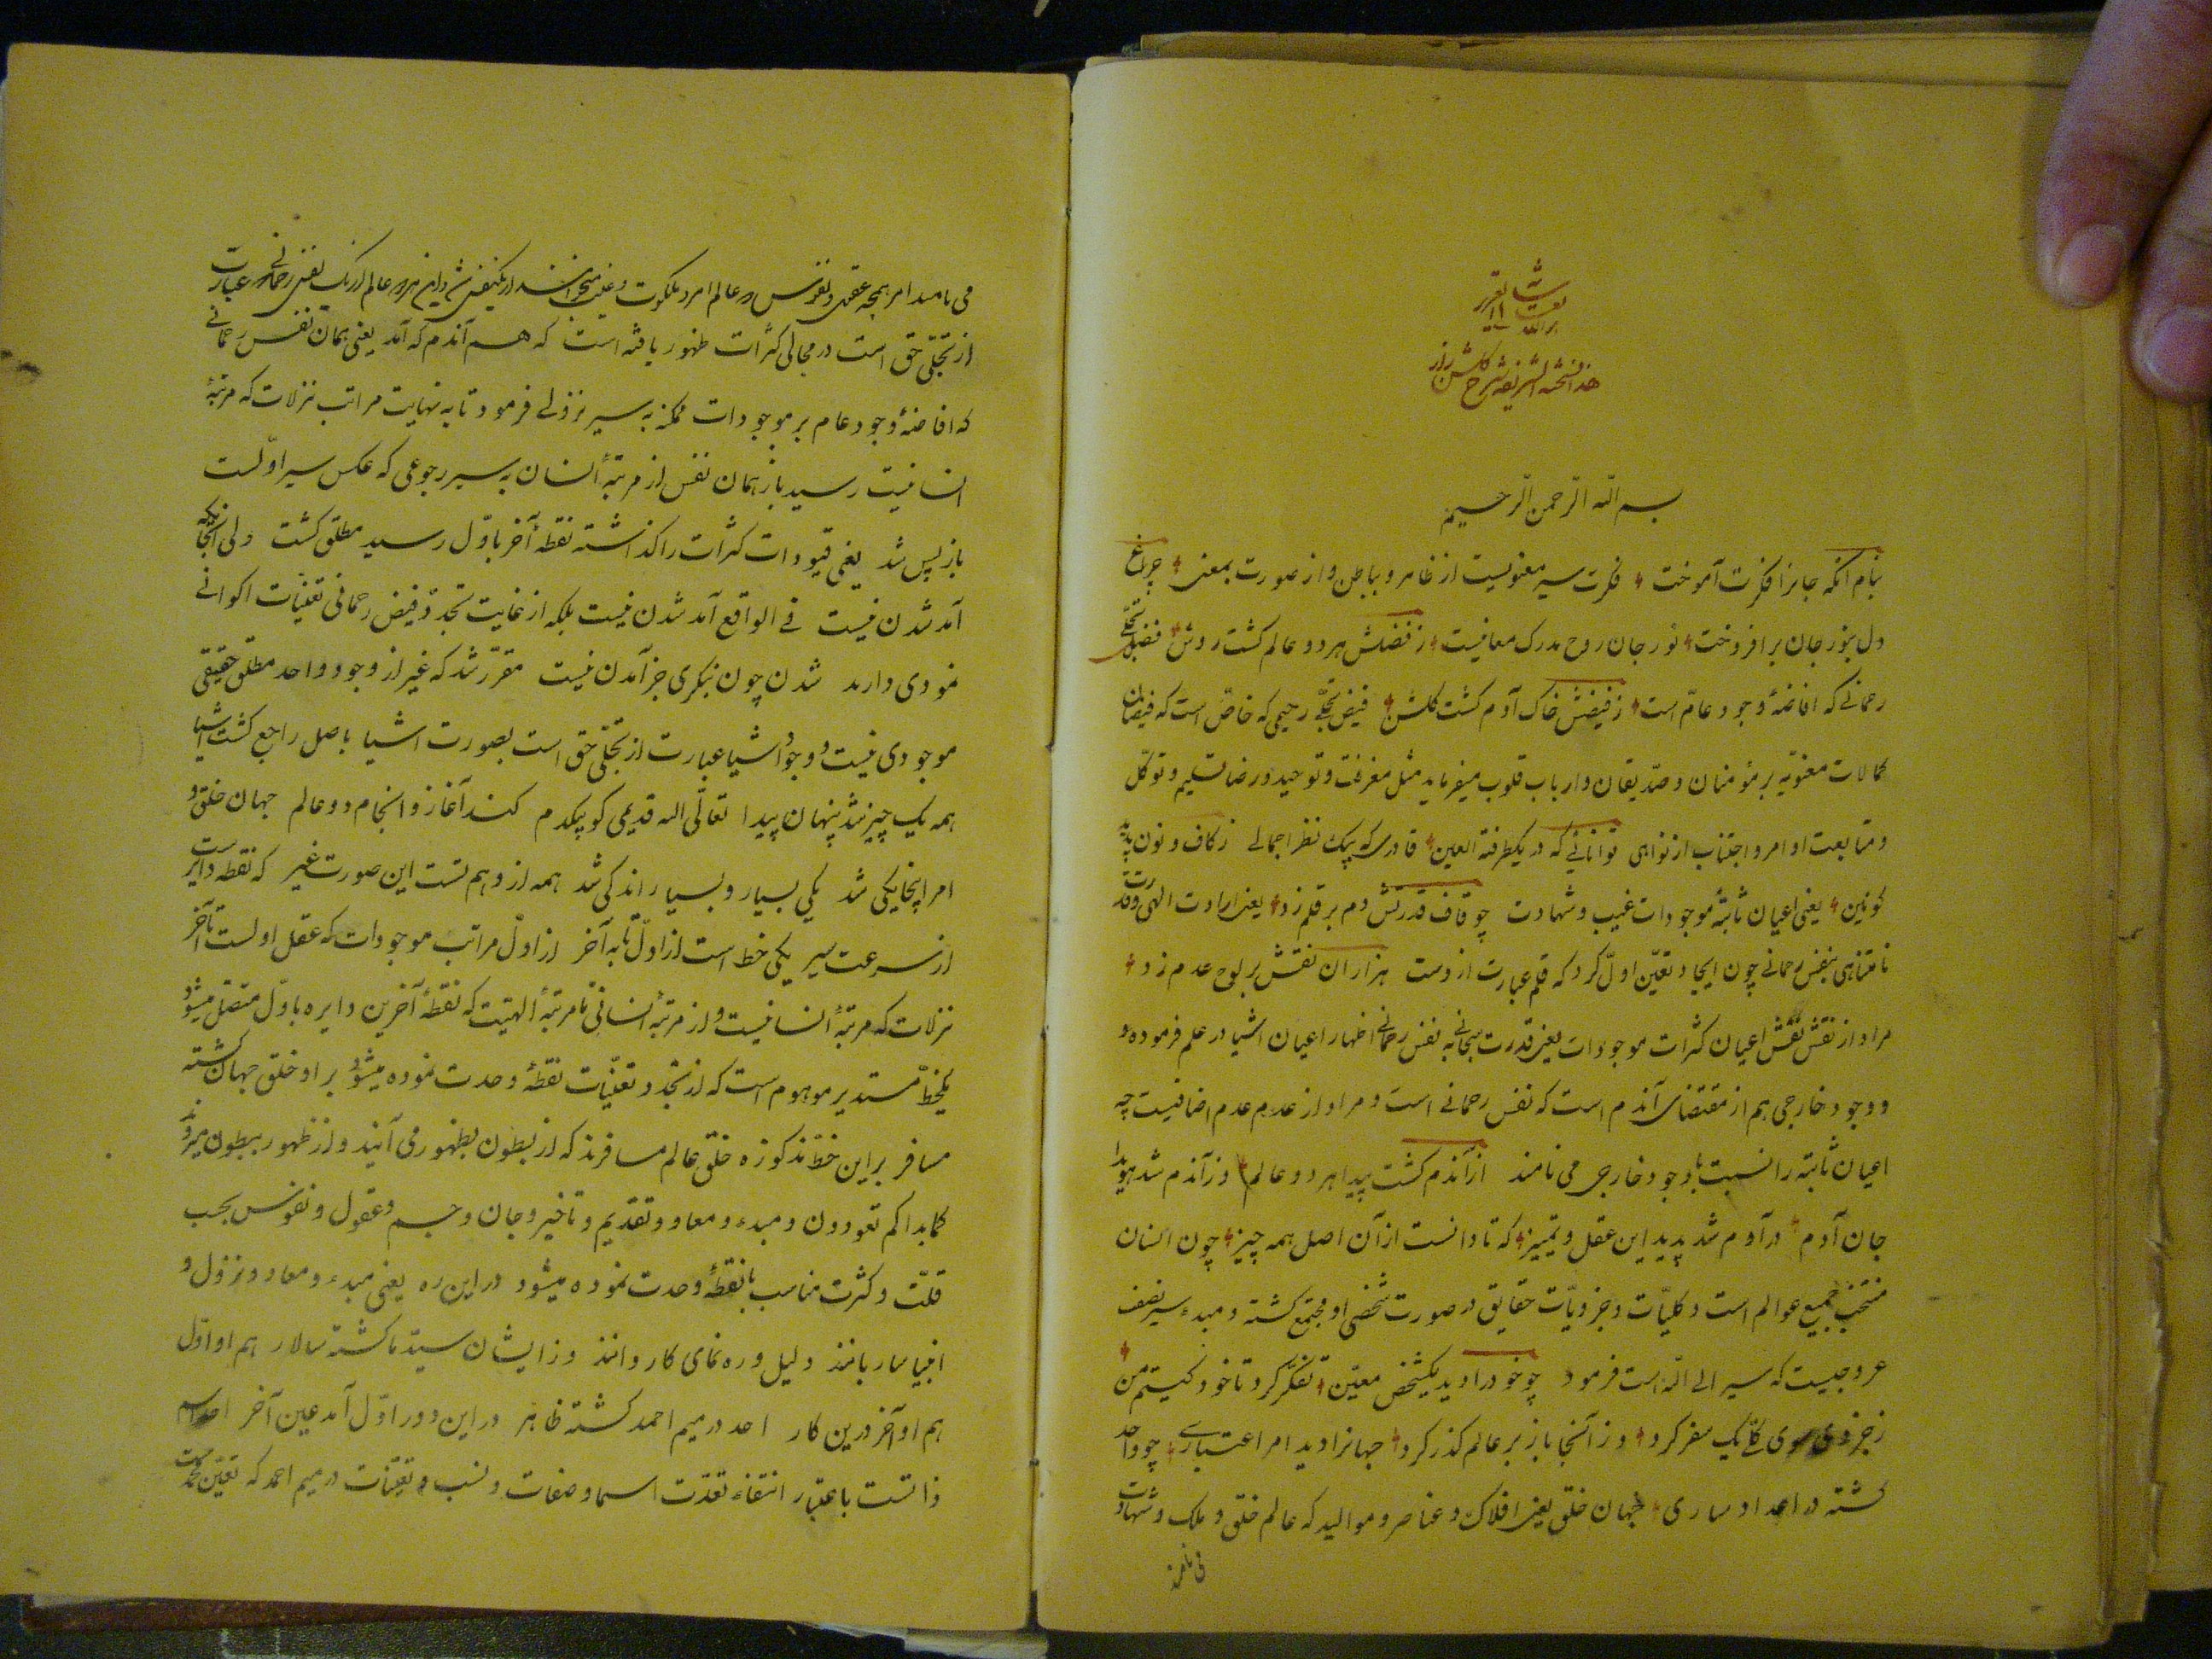 هذا النسخة الشریفه شرح کلشن راز
بسم الله الرحمن الرحیم
بنام آنکه جانرا فکرت آموخت فکرت سیر معنویست از ظاهر و بباطن و از صورت بمعنی چراغ
دل بنور جان برافروخت نور جان روح مدرک معانیست ز فضلش هر دو عالم کشت روشن فضل تجلّی
رحمانے که افاضۀ وجود عامّ است ز فیضش خاک آدم کشت کلشن فیض تجلّے رحیمی که خاصّ است که فیضان
کمالات معنویّه بر مؤمنان و صدّیقان و ارباب قلوب میفرماید مثل معرفت و توحید و رضا و تسلیم و توکّل
و متابعت اوامر و اجتناب از نواهی توانائے که در یکطرفة العین قادری که بیک نظر اجمالے ز کاف و نون پدید
کونین یعنی اعیان ثابتۀ موجودات غیب و شهادت چو قاف قدرتش دم بر قلم زد یعنی ارادت الهی و قدرت
نامتناهی بنفس رحمانے چون ایجاد تعیّن اوّل کرد که قلم عبارت ازوست هزاران نقش بر لوح عدم زد
مراد از نقش نقش اعیان کثرات موجودات یعنی قدرت سبحانے به نفس رحمانے اظهار اعیان اشیا در علم فرموده و
وجود خارجی هم از مقتضای آندم است که نفس رحمانے است و مراد از عدم عدم اضافیست چه
اعیان ثابته را نسبت با وجود خارجی می نامند از آندم کشت پیدا هر دو عالم وز آندم شد هویدا
جان آدم در آدم شد پدید این عقل و تمییز که تا دانست از آن اصل همه چیز چون انسان
منتخب جمیع عوالم است و کلیّات و جزویّات حقایق در صورت شخصی او مجتمع کشته و مبدء سیر نصف
عروجیست که سیر الی الله است فرمود چو خود را دید یکشخص معیّن تفکّر کرد تا خود کیستم من
ز جزوی سوی کلّے یک سفر کرد وز آنجا باز بر عالم کذر کرد جهانرا دید امر اعتبارے چو واحد
کشته در اعداد ساری جهان خلق یعنی افلاک و عناصر و موالید که عالم خلق و ملک و شهادت
می نامند
می نامند امر همچه عقول و نفوس که عالم امر و ملکوت و غیب میخوانند از یکنفس شد و این هر دو عالم از یک نفس رحمانے که عبارت
از تجلّی حق است در مجالی کثرات ظهور یافته است که هم آندم که آمد یعنی همان نفس رحمانے
که افاضۀ وجود عام بر موجودات ممکنه به سیر نزولے فرمود تا به نهایت مراتب تنزلات که مرتبۀ
انسانیت رسید باز همان نفس از مرتبۀ انسان به سیر رجوعی که عکس سیر اوّلست
باز پس شد یعنی قیودات کثرات را کذاشته نقطۀ آخر باوّل رسید مطلق کشت ولی آنجایکه
آمد شدن نیست فے الواقع آمد شدن نیست بلکه از غایت تجدّد فیض رحمانی تعیّنات اکوانے
نمودی دارند شدن چون بنکری جز آمدن نیست مقرّر شد که غیر از وجود واحد مطلق حقیقی
موجودی نیست و وجود اشیا عبارت از تجلّی حق است بصورت اشیا باصل راجع کشت اشیا
همه یک چیز شد پنهان پیدا تعالی الله قدیمی کو بیکدم کند آغاز و انجام دو عالم جهان خلق و
امر اینجا یکی شد یکی بسیار و بسیار اندکی شد همه از وهم تست این صورت غیر که نقطه دایرست
از سرعت سیر یکی خط است از اوّل تا به آخر از اوّل مراتب موجودات که عقل اولست تا آخر
تنزلات که مرتبۀ انسانیست و از مرتبۀ انسانی تا مرتبۀ الهیّت که نقطۀ آخرین دایره باوّل متصل میشود
یکخطّ مستدیر موهوم است که از تجدد تعیّنات نقطۀ وحدت نموده میشود برو خلق جهان کشته
مسافر بر این خطّ مذکوره خلق عالم مسافرند که از بطون بظهور می آیند و از ظهور ببطون میروند
کما بداکم تعودون و مبدء و معاد و تقدیم و تاخیر و جان و جسم و عقول و نفوس بحسب
قلّت و کثرت مناسب با نقطۀ وحدت نموده میشود در این ره یعنی مبدء و معاد و نزول و
انبیا ساربانند دلیل و ره نمای کاروانند وز ایشان سیّد ما کشته سالار هم او اوّل
هم او آخر درین کار احد در میم احمد کشته ظاهر در این دور اوّل آمد عین آخر احد اسم
ذاتست باعتبار انتفاء تعدّد اسما و صفات و نسب و تعیّنات در میم احمد که تعیّن محمّدیست